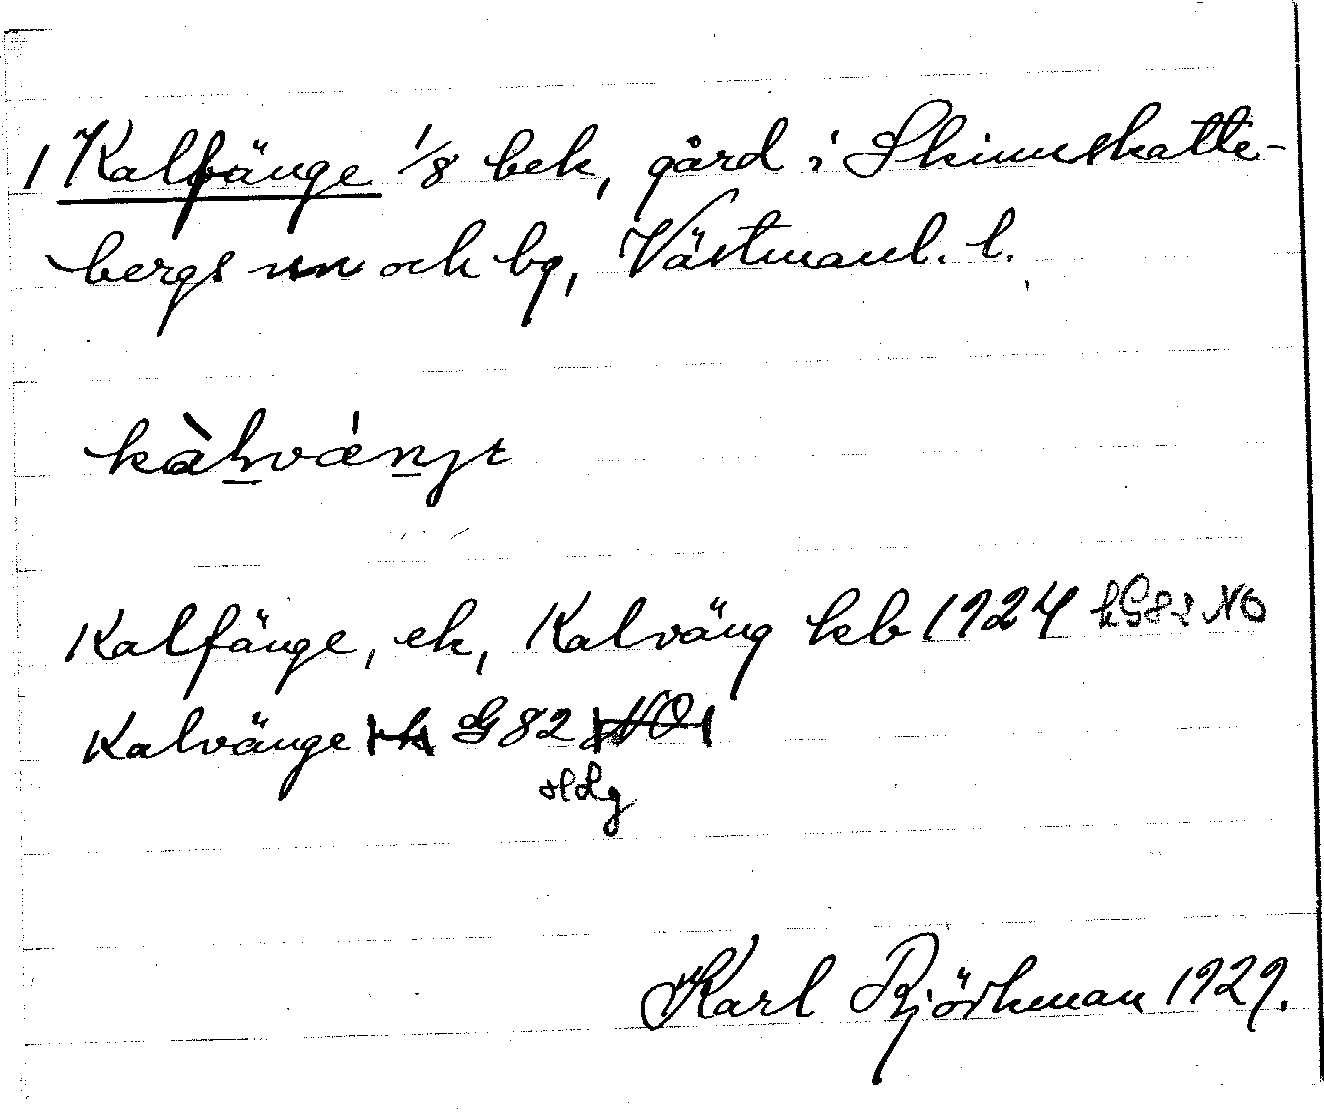 1 Kalfänge 1/8 bek, gård i Skinnskatte-
bergs sn och bg, Västmanl. l.
kàlvä́njε
Kalfänge, ek, Kalväng kb 1924 kG82 NO
Kalvänge ek G82 NO
Karl Björkman 1929.